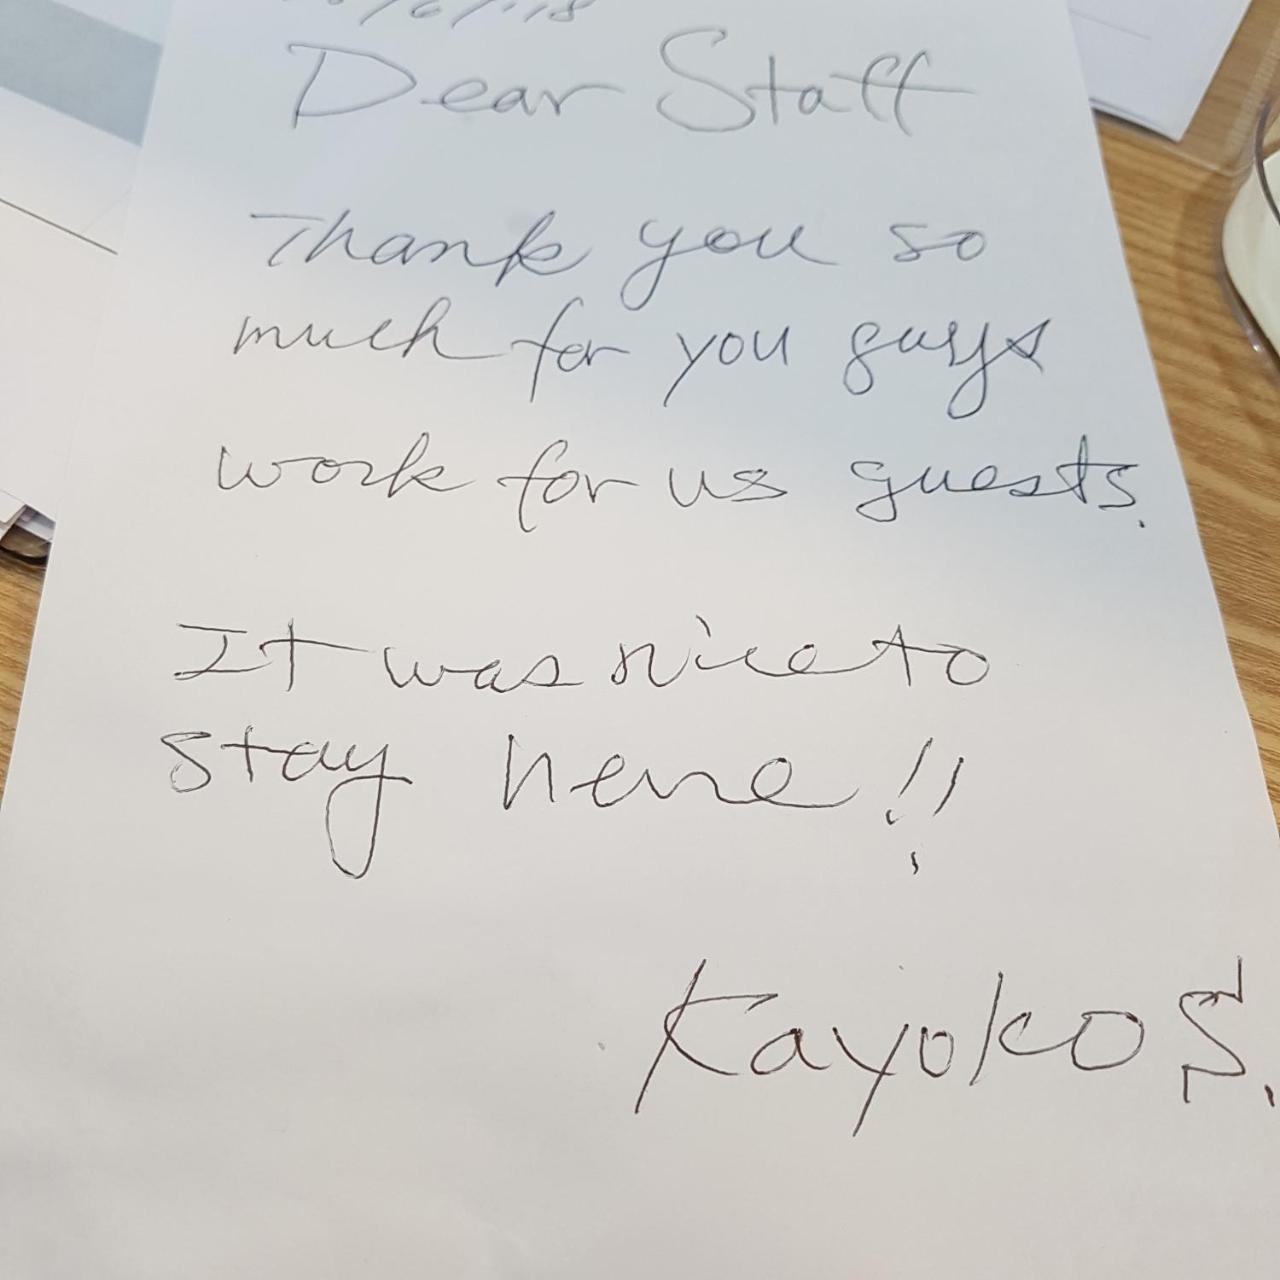 Dear Staff
Thank you so
much for you guys
work for us guests.
It was nice to
stay here!!
Kayoko S.